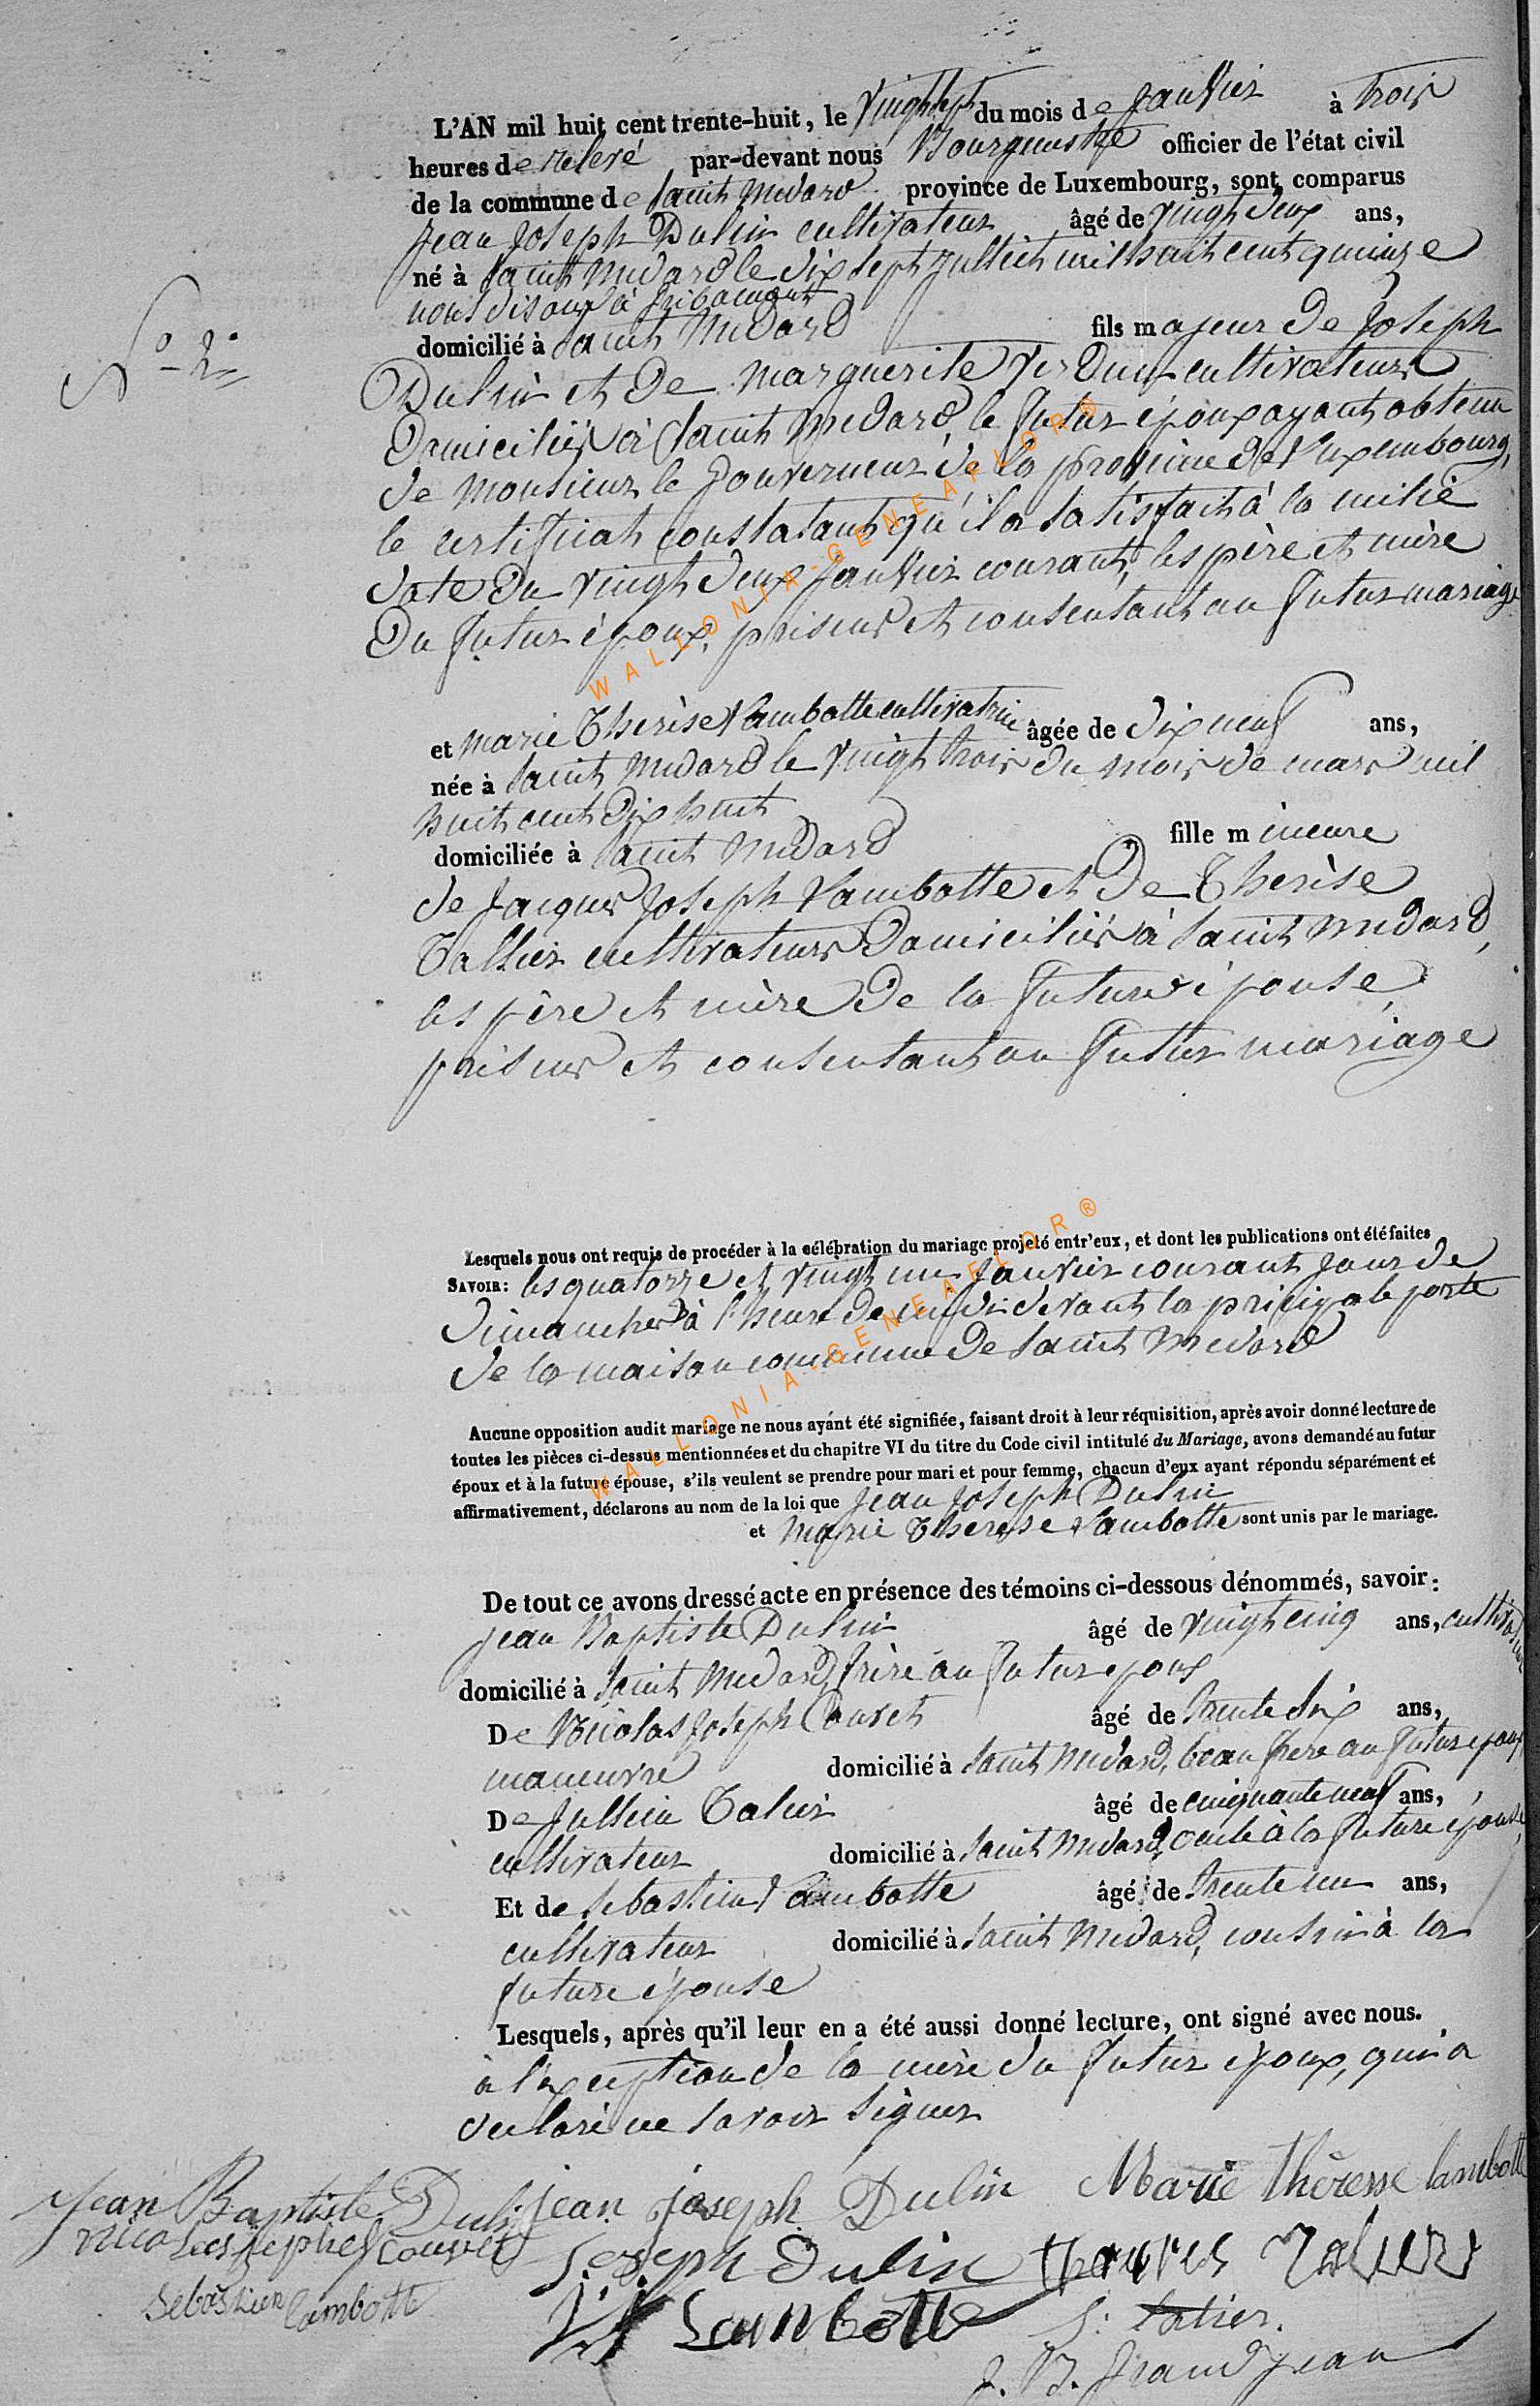 L'AN mil huit cent trente-huit, le vingt sept du mois de Janvier à trois
heures de relevé par-devant nous Bourgmestre officier de l'état civil
de la commune de Saint Medard province de Luxembourg, sont comparus
Jean Joseph Dulin cultivateur âgé de vingt deux ans,
né à Saint Medard le dix sept Julliet mil huit cent quinze
nous disons à
domicilié à Saint Medard fils majeur de Joseph
N° 2
Dulin et de Marguerite cultivateurs
Domiciliés à Saint Medard, le futur époux ayant obtenu
de Monsieur le Gouverneur de la province de Luxembourg,
le certificat constatant qu'il a satisfait à la milice
date du vingt deux Janvier courant, les père et mère
Du futur époux, présens et consentant au futur mariage
et Marie Therèse Lambotte cultivatrice âgée de dix neuf ans,
née à Saint Medard le vingt trois du mois de mars mil
huit cent dix huit
domiciliée à Saint Medard fille mineure
de Jacques Joseph Lambotte et De Therèse
Tallier cultivateurs Domiciliés à Saint Medard,
les père et mère De la future épouse,
présens et consentant au futur mariage
Lesquels nous ont requis de procéder à la célébration du mariage projeté entr'eux, et dont les publications ont été faites
SAVOIR: les quatorze et vingt un Janvier courant jour de
Dimanche à l'heure de midi devant la pricipale porte
de la maison commune De Saint Medard
Aucune opposition audit mariage ne nous ayant été signifiée, faisant droit à leur réquisition, après avoir donné lecture de
toutes les pièces ci-dessus mentionnées et du chapitre VI du titre du Code civil intitulé du Mariage, avons demandé au futur
époux et à la future épouse, s'ils veulent se prendre pour mari et pour femme, chacun d'eux ayant répondu séparément et
affirmativement, déclarons au nom de la loi que Jean Joseph Dulin
et Marie Therese Lambotte sont unis par le mariage.
De tout ce avons dressé acte en présence des témoins ci-dessous dénommés, savoir:
Jean Baptiste Dulin âgé de vingt cinq ans, cultivateur
domicilié à Saint Medard, frère au futur epoux
De Nicolas Joseph Couvet âgé de trente six ans,
maneuvre domicilié à Saint Medard, beau frere au futur epoux
De Jullien Talier âgé de cinquante neuf ans,
cultivateur domicilié à Saint Medard, oncle à la future épouse,
Et de Sebastien Lambotte âgé de trente un ans,
cultivateur domicilié à Saint Medard, cousin à la
future épouse
Lesquels, après qu'il leur en a été aussi donné lecture, ont signé avec nous.
à l'exception de la mère du futur epoux, qui a
declaré ne savoir signer
Jean Baptiste Dulin jean joseph Dulin Marie thêresse lambotte
nicolas joseph Couvet Joseph Dulin Talier
Sebastien Lambotte J J Lambotte
J. B. Grandjean
WALLONIA-GENEAFLOR®
WALLONIA-GENEAFLOR®